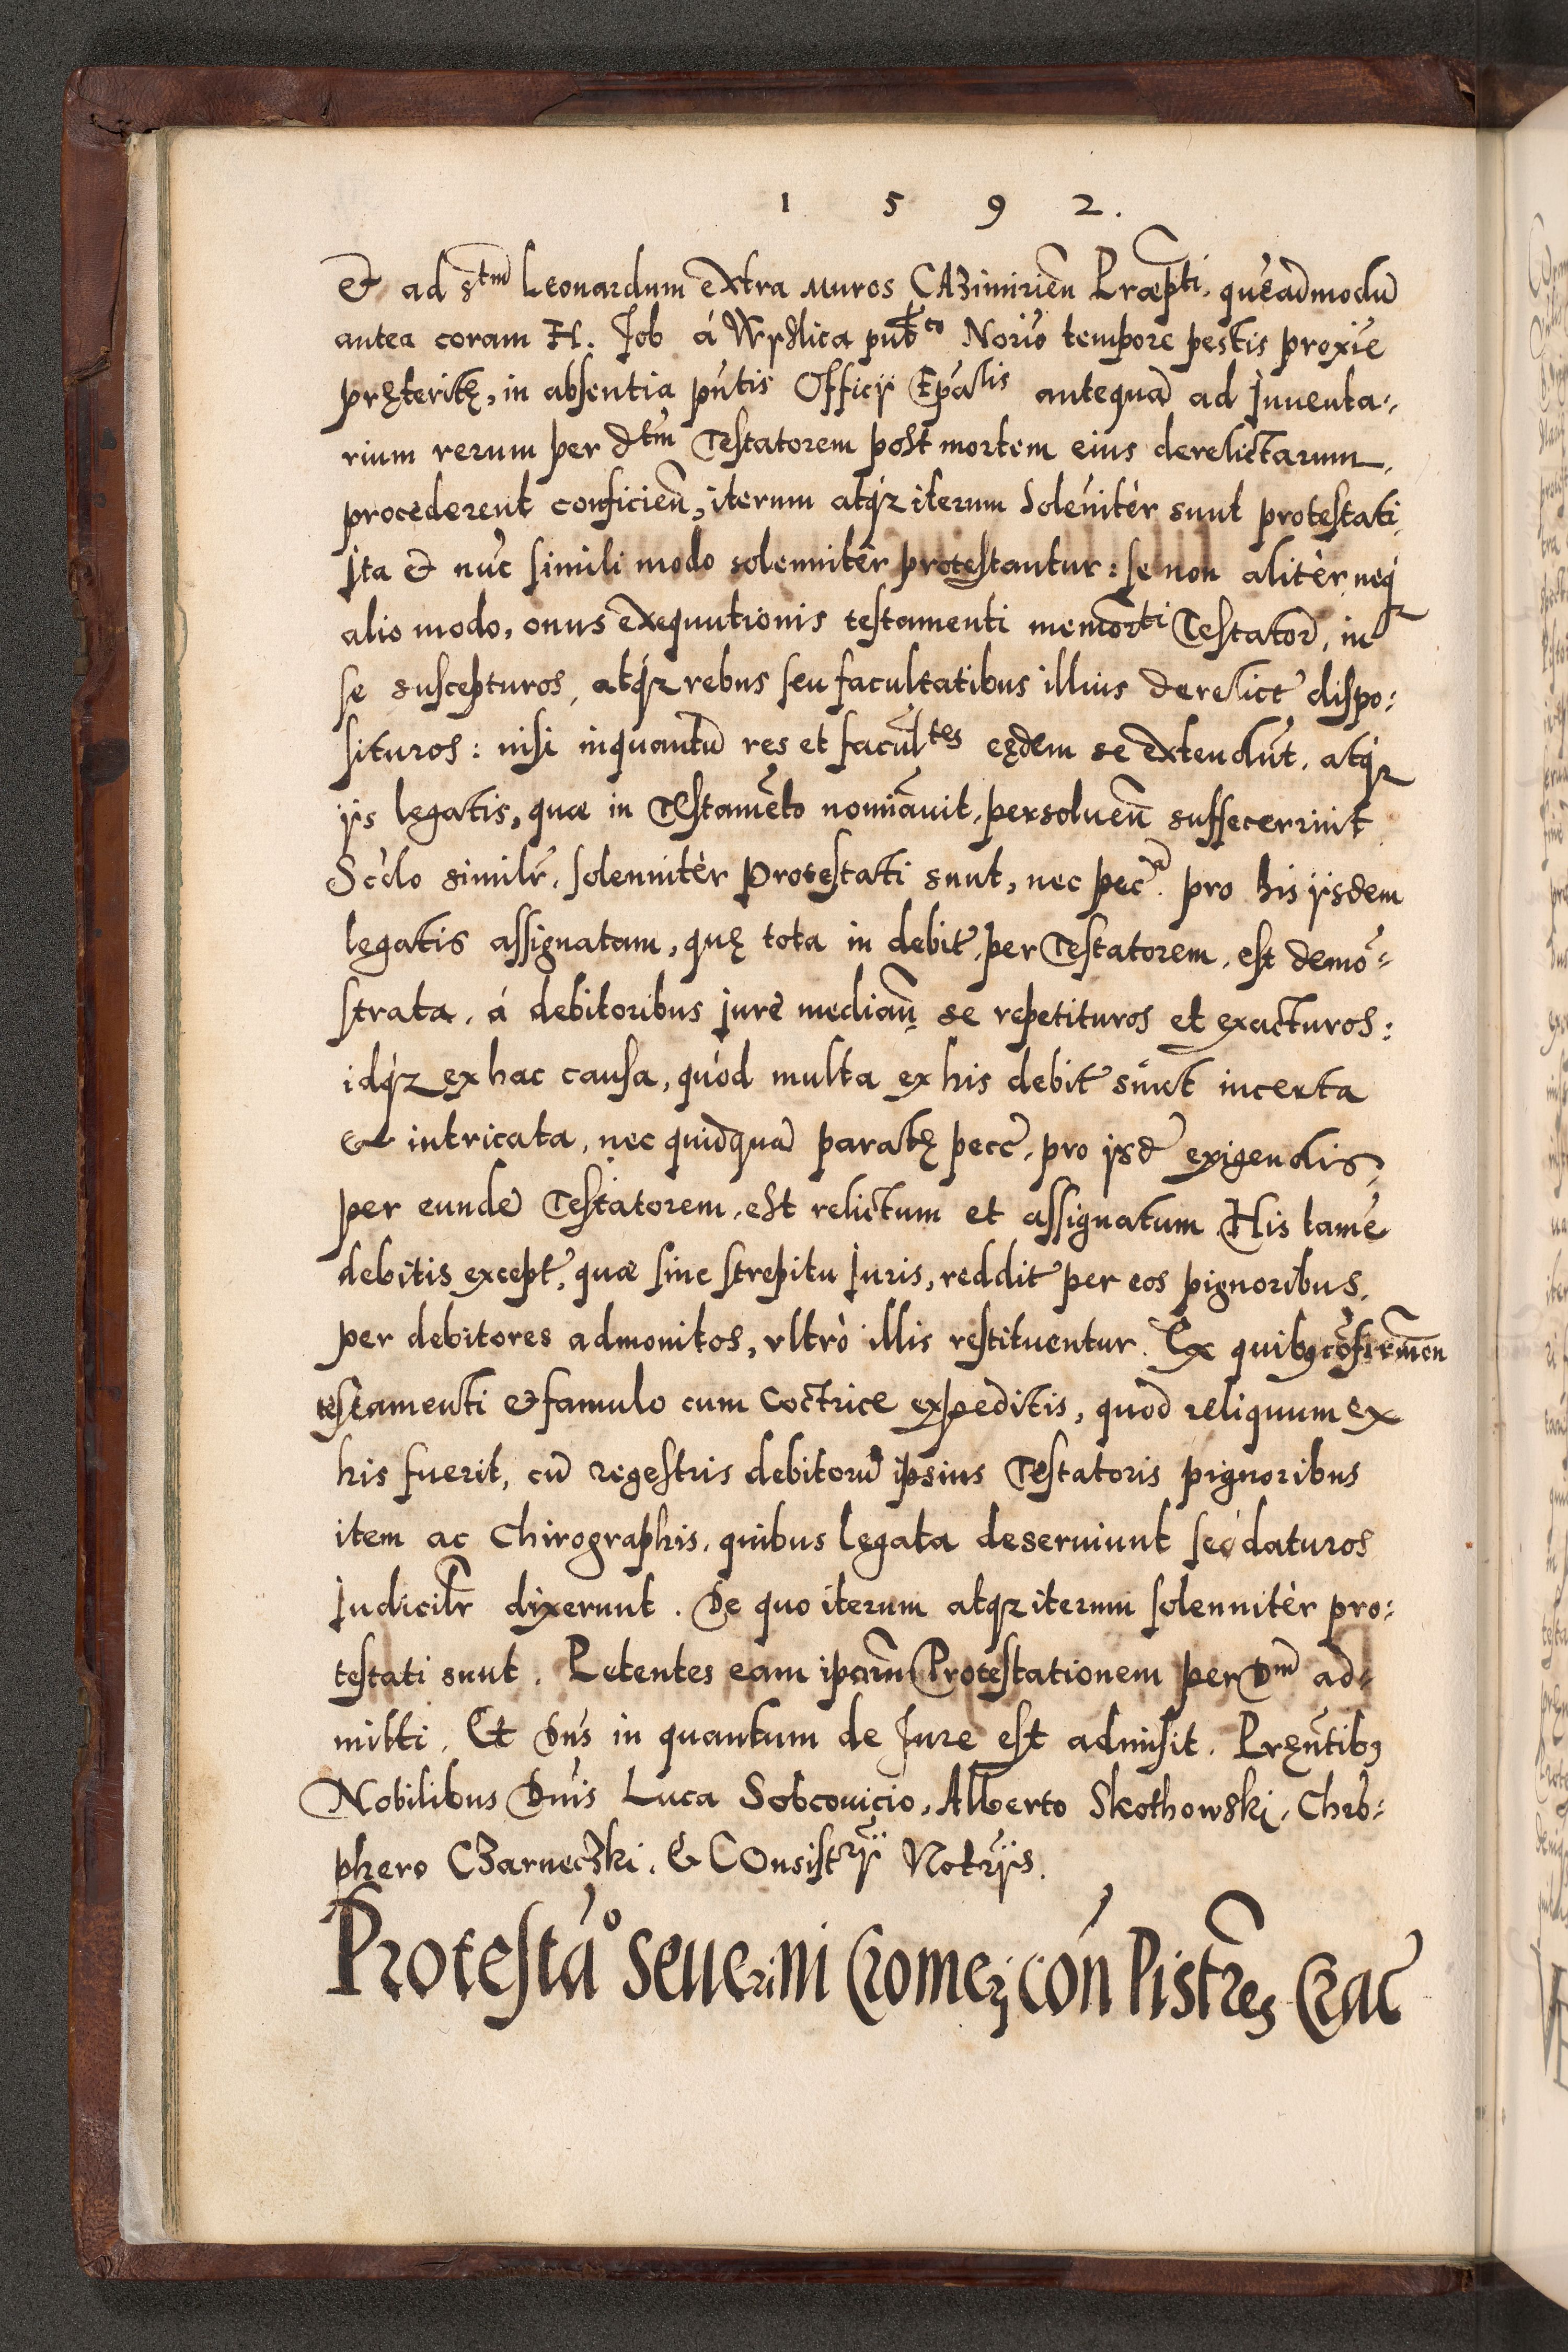 1 5 9 2.
& ad S^tm Leonardum extra muros CAZimirien̄ Præp^ti. quēadmodū
antea coram H. Job á Wyslica pub^co Norio tempore pestis proxīe
prętęritę, in absentia pn̄tis Officij Epālis antequā ad Inuenta-
rium rerum per d^tm Testatorem post mortem eius derelictarum,
procederent conficien̄, iterum atq́ iterum solēnitèr sunt protestati,
Ita & nūc simili modo solennitèr protestantur: se non alitèr neq́
alio modo, onus exequutionis testamenti memor^ti Testator, in
se suscepturos, atq́ rebus seu facultatibus illius derelict' dispo:
situros: nisi inquantū res et facul^tes eędem se extendūt, atq́
ijs legatis, quæ in Testamēto nomīauit, persoluen̄ suffecerint.
Scd̀o similr̄, solennitèr Protestati sunt, nec pec^a. pro his ijsdem
legatis assignatam, quę tota in debit' per Testatorem, est demō-
strata, á debitoribus jurè median̄ se repetituros et exacturos:
idq́ ex hac causa, quòd multa ex his debit' sunt incerta
et intricata, nec quidquā paratę pecc̄, pro ijsd' exigendis,
per eundē Testatorem, est relictum et assignatum. His tamē
debitis except', quæ sine strepitu Juris, reddit' per eos pignoribus,
per debitores admonitos, vltrò illis restituentur. Ex quibꝯ cōfirmōn
testamenti & famulo cum coctrice expeditis, quod reliquum ex
his fuerit, cū regestris debitorū ipsius Testatoris pignoribus
item ac Chirographis, quibus legata deseruiunt se daturos
Judicilr̄ dixerunt. De quo iterum atq́ iterum solennitèr pro:
testati sunt. Petentes eam ipōrum Protestationem per D^m ad-
mitti. Et Dn̄s in quantum de Jure est admisit. Pręn̄tibꝯ
Nobilibus Dn̄is Luca Sobcouicio, Alberto Skothowski, Chrō-
phero CZarneczki. & COnsist^rij Notrijs.
Protestā^o Seuerini Cromer con̄ Pistres Crac̄